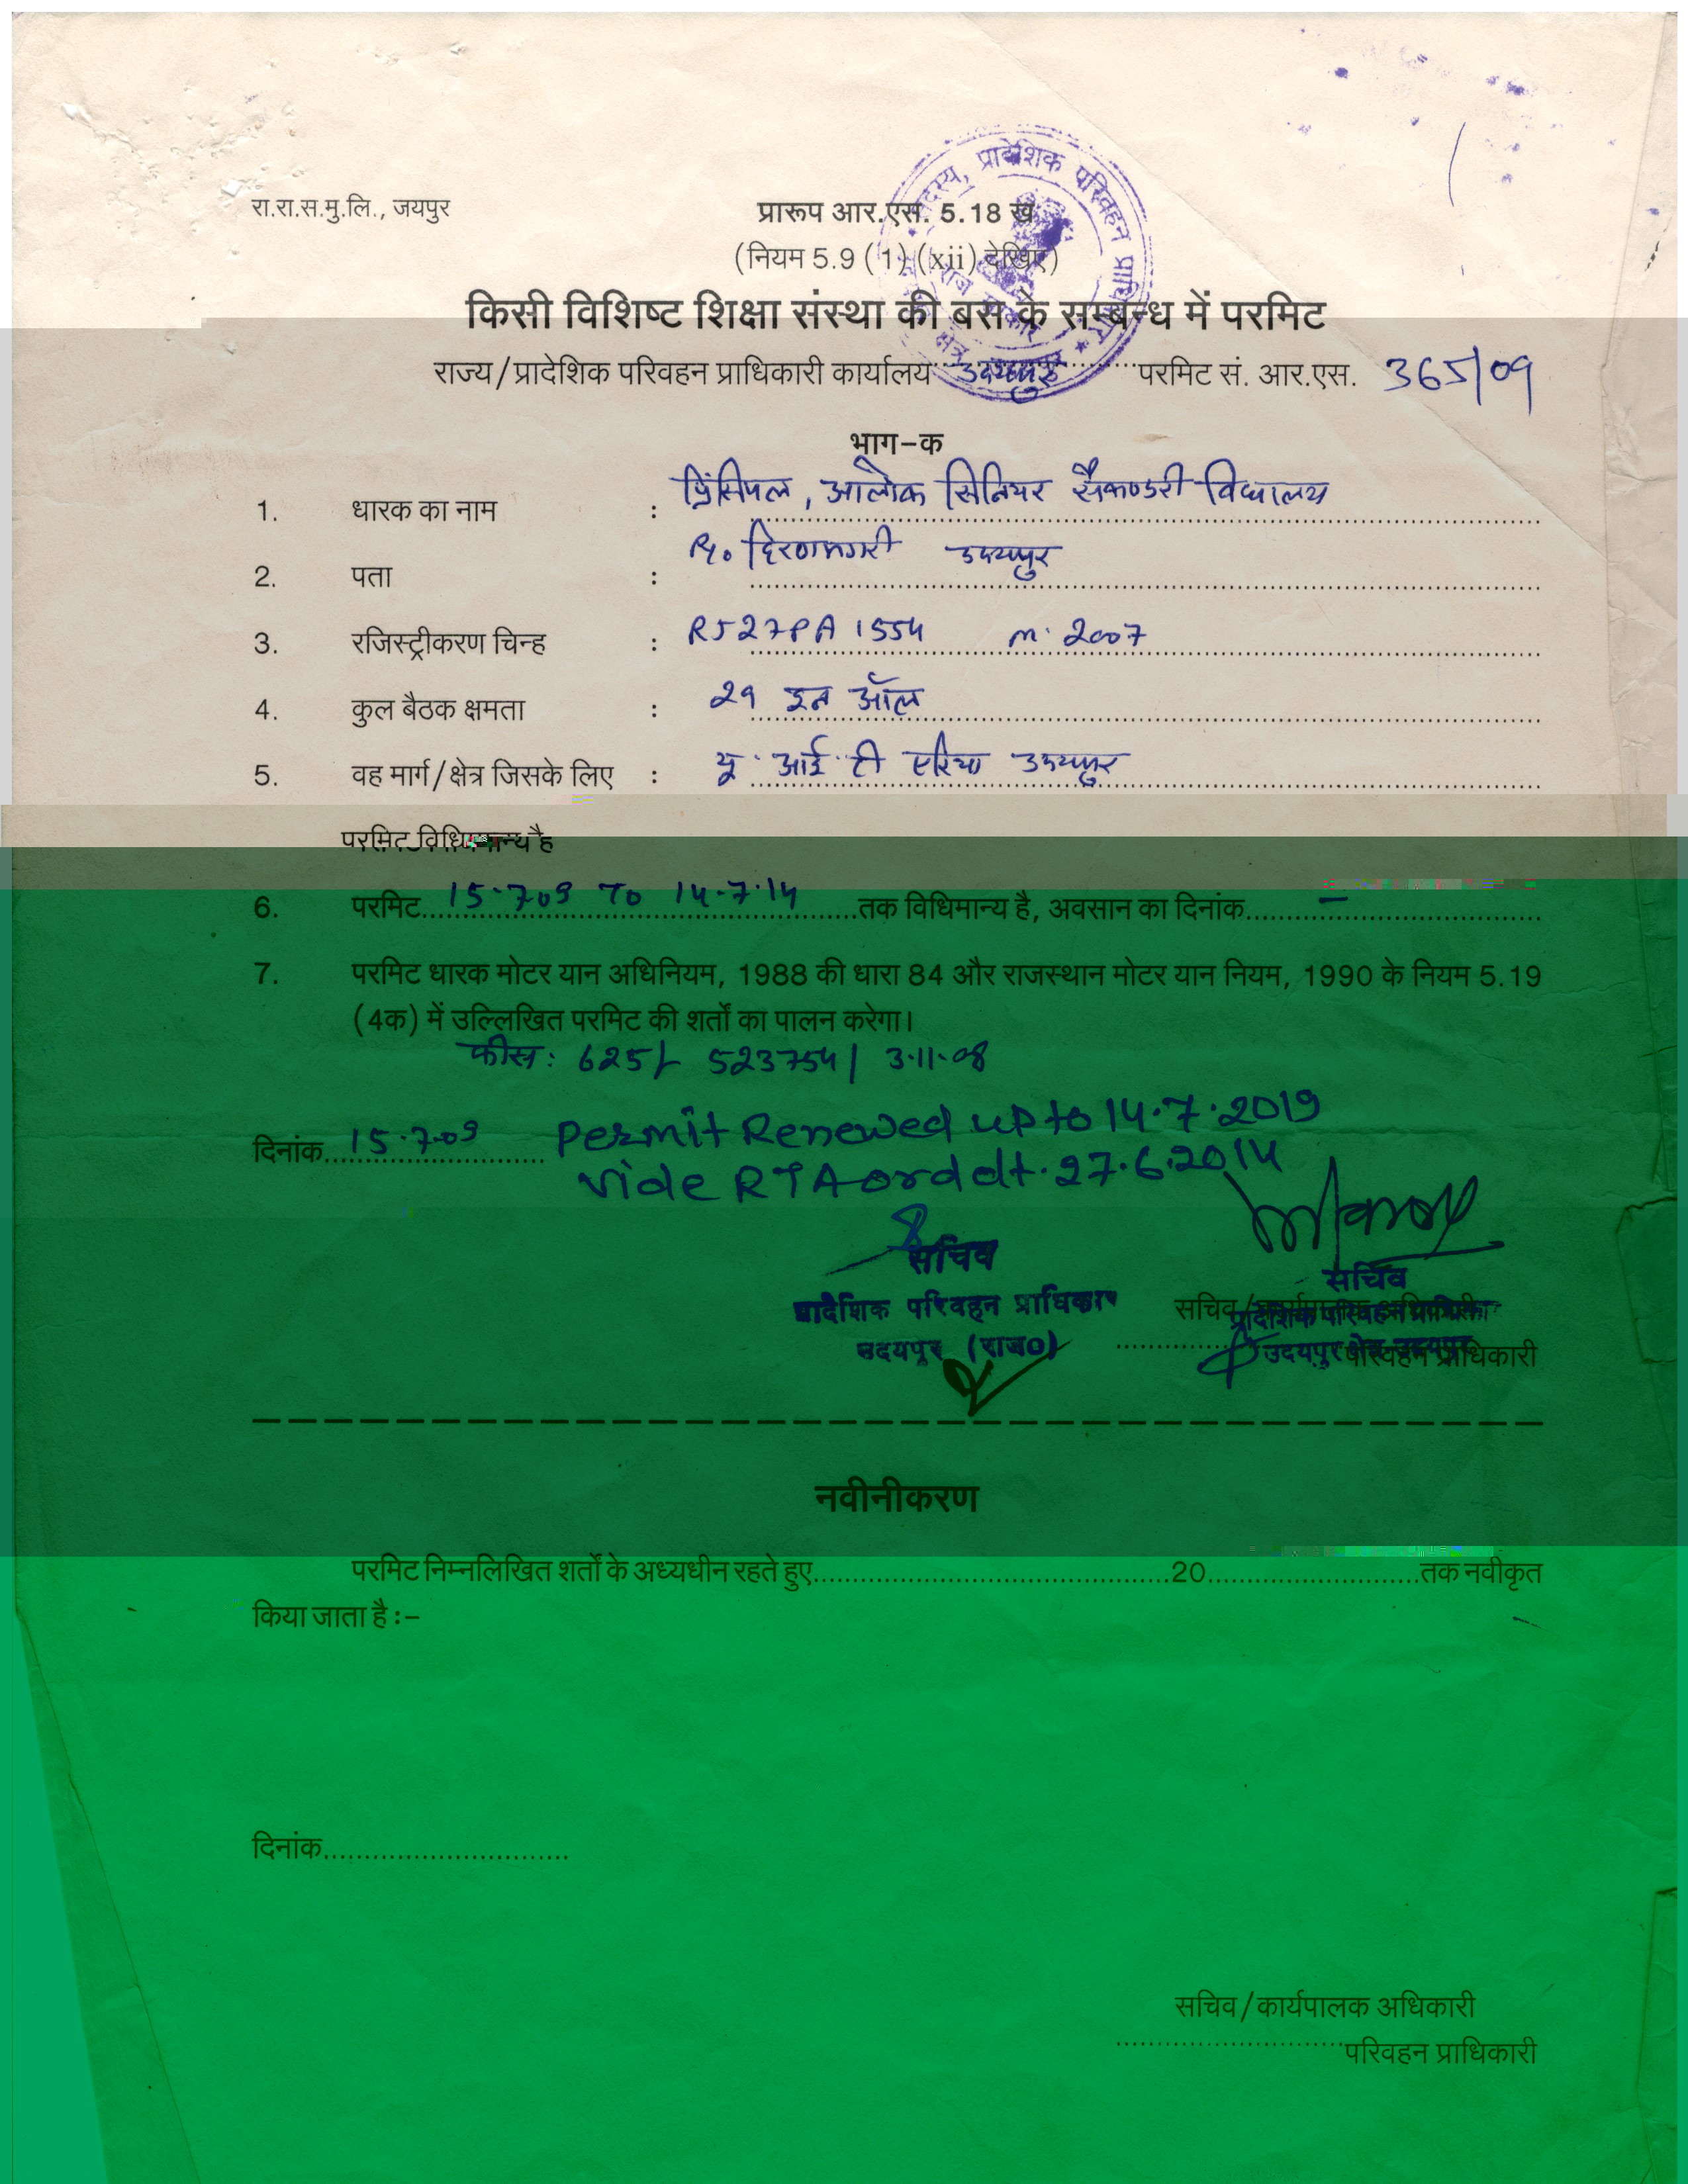 रा.रा.स.मु.लि., जयपुर
प्रारूप आर.एस. 5.18 ख
(नियम 5.9 (1) (xii) देखिए)
किसी विशिष्ट शिक्षा संस्था की बस के सम्बन्ध में परमिट
राज्य/प्रादेशिक परिवहन प्राधिकारी कार्यालय उदयपुर परमिट सं. आर.एस. 365/09
भाग-क
1. धारक का नाम : प्रिंसिपल, आलोक सिनियर सैकण्डरी विद्यालय
2. पता : हिरणमगरी उदयपुर
3. रजिस्ट्रीकरण चिन्ह : RJ27PA 1554 m. 2007
4. कुल बैठक क्षमता : 29 इन ऑल
5. वह मार्ग/क्षेत्र जिसके लिए : यू. आई. टी एरिया उदयपुर
परमिट विधिमान्य है
6. परमिट 15.7.09 To 14.7.14 तक विधिमान्य है, अवसान का दिनांक –
7. परमिट धारक मोटर यान अधिनियम, 1988 की धारा 84 और राजस्थान मोटर यान नियम, 1990 के नियम 5.19
(4क) में उल्लिखित परमिट की शर्तों का पालन करेगा।
फीस: 625/- 523754/ 3.11.08
दिनांक 15.7.09 Permit Renewed up to 14.7.2019
vide RTA ord dt. 27.6.2014
सचिव
प्रादेशिक परिवहन प्राधिकार
उदयपुर (राज0)
सचिव
सचिव/कार्यपालक अधिकारी
प्रादेशिक परिवहन प्राधिकार
उदयपुर क्षेत्र उदयपुर
परिवहन प्राधिकारी
नवीनीकरण
परमिट निम्नलिखित शर्तों के अध्यधीन रहते हुए....................20....................तक नवीकृत
किया जाता है :–
दिनांक....................
सचिव/कार्यपालक अधिकारी
....................परिवहन प्राधिकारी